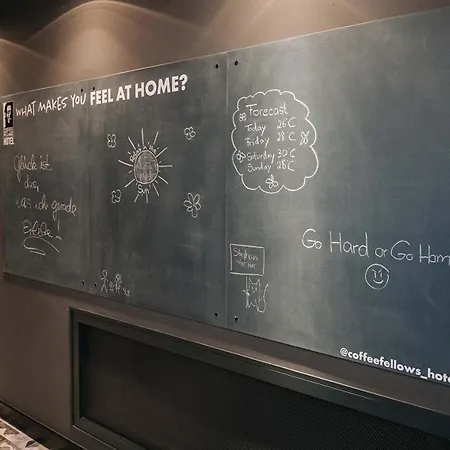 WHAT MAKES YOU FEEL AT HOME?
HOTEL
Glück ist
das,
was ich gerade
Forecast
Today 26°C
Friday 28°C
Saturday 30°C
Sunday 28°C
Sun
Stephan
was here
Go Hard or Go Hom
@coffeefellows_hote